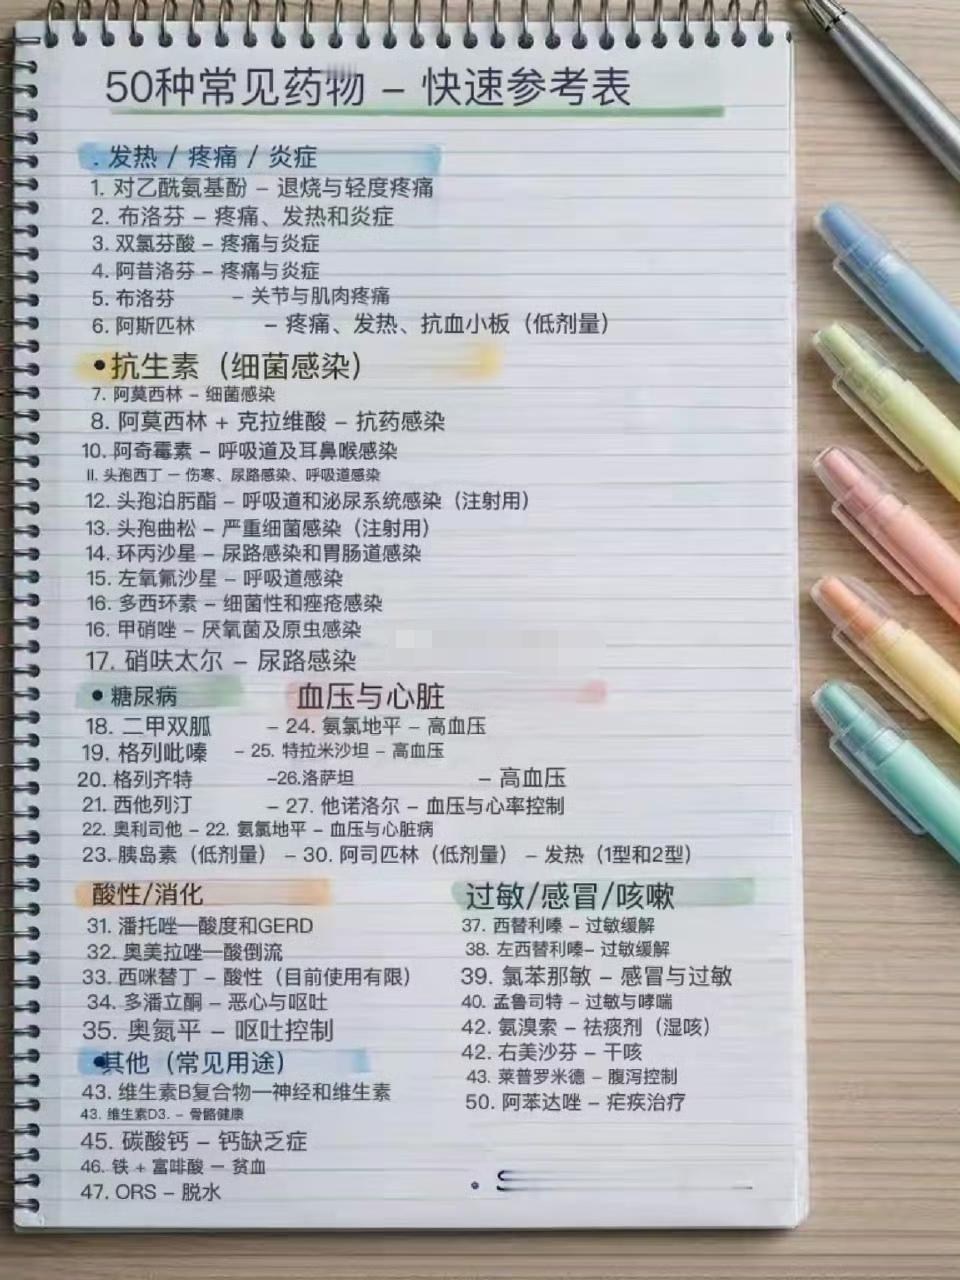 50种常见药物 – 快速参考表
. 发热 / 疼痛 / 炎症
1. 对乙酰氨基酚 – 退烧与轻度疼痛
2. 布洛芬 – 疼痛、发热和炎症
3. 双氯芬酸 – 疼痛与炎症
4. 阿昔洛芬 – 疼痛与炎症
5. 布洛芬 – 关节与肌肉疼痛
6. 阿斯匹林 – 疼痛、发热、抗血小板（低剂量）
• 抗生素（细菌感染）
7. 阿莫西林 – 细菌感染
8. 阿莫西林 + 克拉维酸 – 抗药感染
10. 阿奇霉素 – 呼吸道及耳鼻喉感染
II. 头孢西丁 — 伤寒、尿路感染、呼吸道感染
12. 头孢泊肟酯 – 呼吸道和泌尿系统感染（注射用）
13. 头孢曲松 – 严重细菌感染（注射用）
14. 环丙沙星 – 尿路感染和胃肠道感染
15. 左氧氟沙星 – 呼吸道感染
16. 多西环素 – 细菌性和痤疮感染
16. 甲硝唑 – 厌氧菌及原虫感染
17. 硝呋太尔 – 尿路感染
• 糖尿病
血压与心脏
18. 二甲双胍 – 24. 氨氯地平 – 高血压
19. 格列吡嗪 – 25. 特拉米沙坦 – 高血压
20. 格列齐特 –26.洛萨坦 – 高血压
21. 西他列汀 – 27. 他诺洛尔 – 血压与心率控制
22. 奥利司他 – 22. 氨氯地平 – 血压与心脏病
23. 胰岛素（低剂量） – 30. 阿司匹林（低剂量） – 发热（1型和2型）
酸性/消化
31. 潘托唑—酸度和GERD
32. 奥美拉唑—酸倒流
33. 西咪替丁 – 酸性（目前使用有限）
34. 多潘立酮 – 恶心与呕吐
35. 奥氮平 – 呕吐控制
•其他（常见用途）
43. 维生素B复合物—神经和维生素
43. 维生素D3. – 骨骼健康
45. 碳酸钙 – 钙缺乏症
46. 铁 + 富啡酸 — 贫血
47. ORS – 脱水
过敏/感冒/咳嗽
37. 西替利嗪 – 过敏缓解
38. 左西替利嗪– 过敏缓解
39. 氯苯那敏 – 感冒与过敏
40. 孟鲁司特 – 过敏与哮喘
42. 氨溴索 – 祛痰剂（湿咳）
42. 右美沙芬 – 干咳
43. 莱普罗米德 – 腹泻控制
50. 阿苯达唑 – 疟疾治疗